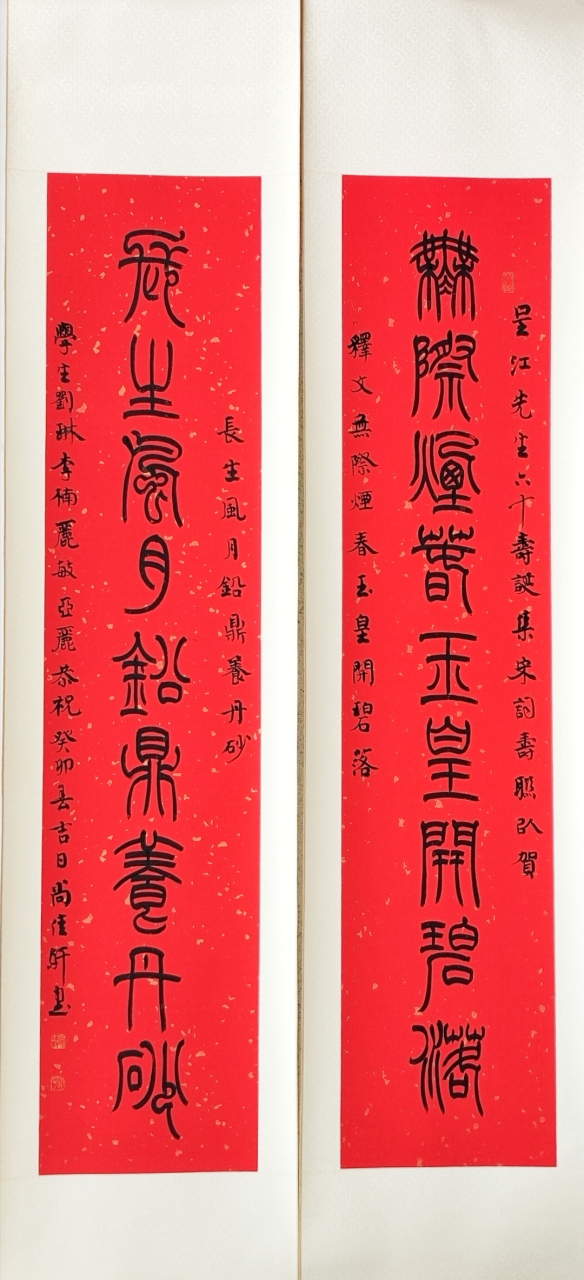 呈江先生六十壽誕集宋詞壽聯以賀
無際煙春玉皇開碧落
釋文無際煙春玉皇開碧落
長生風月鉛鼎養丹砂
長生風月鉛鼎養丹砂
學生劉琳李楠麗敏亞麗恭祝癸卯春吉日尚佳軒書